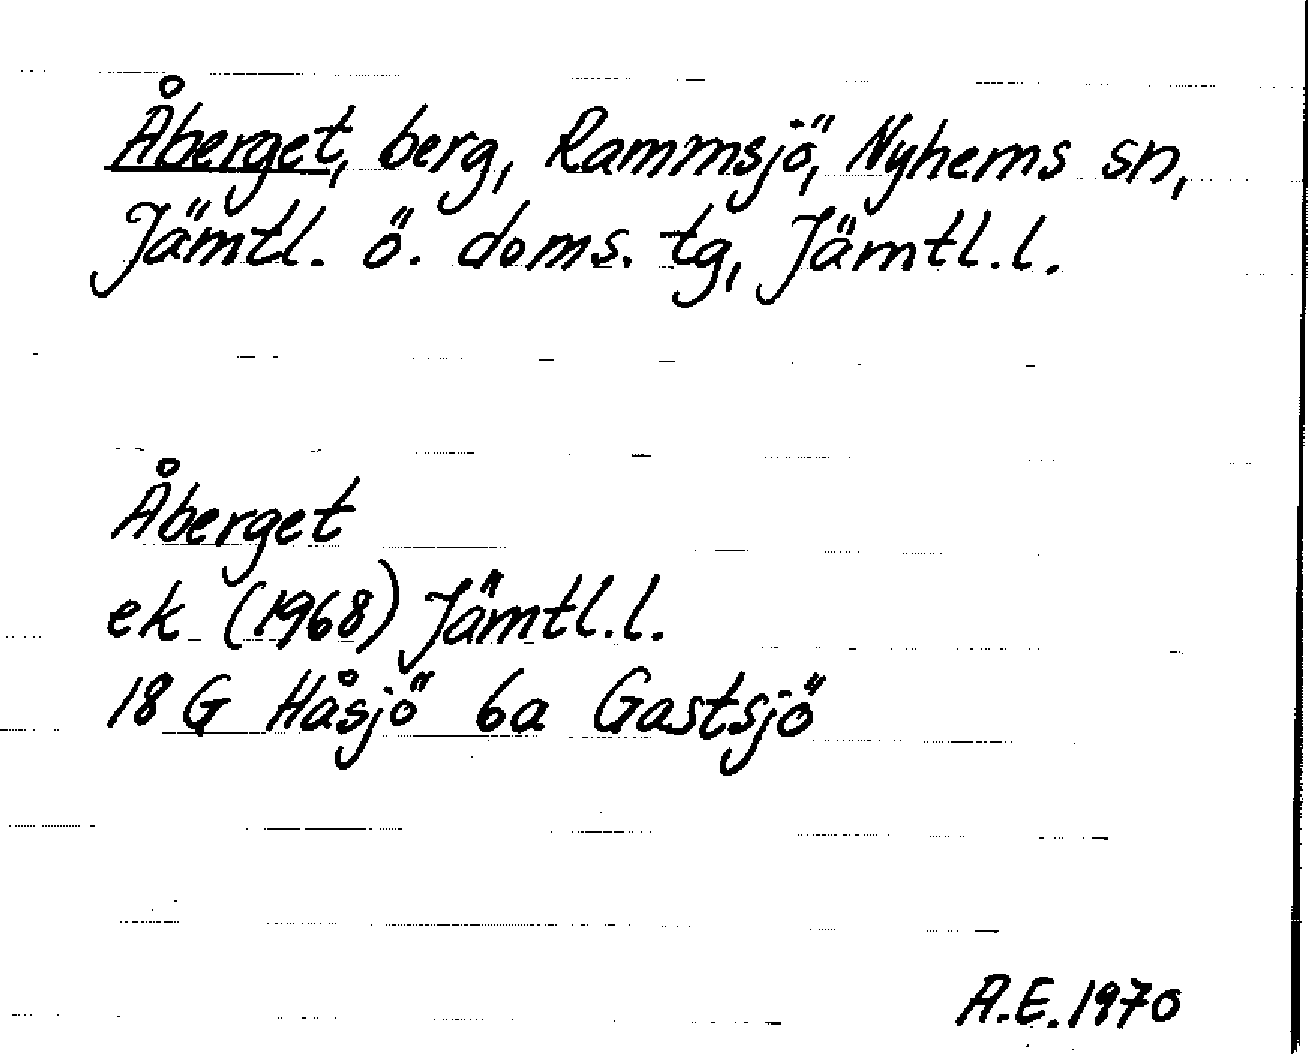 Åberget, berg, Rammsjö, Nyhems sn,
Jämtl. ö. doms. tg, Jämtl.l.
Åberget
ek (1968) Jämtl.l.
18 G Håsjö 6a Gastsjö
A.E. 1970